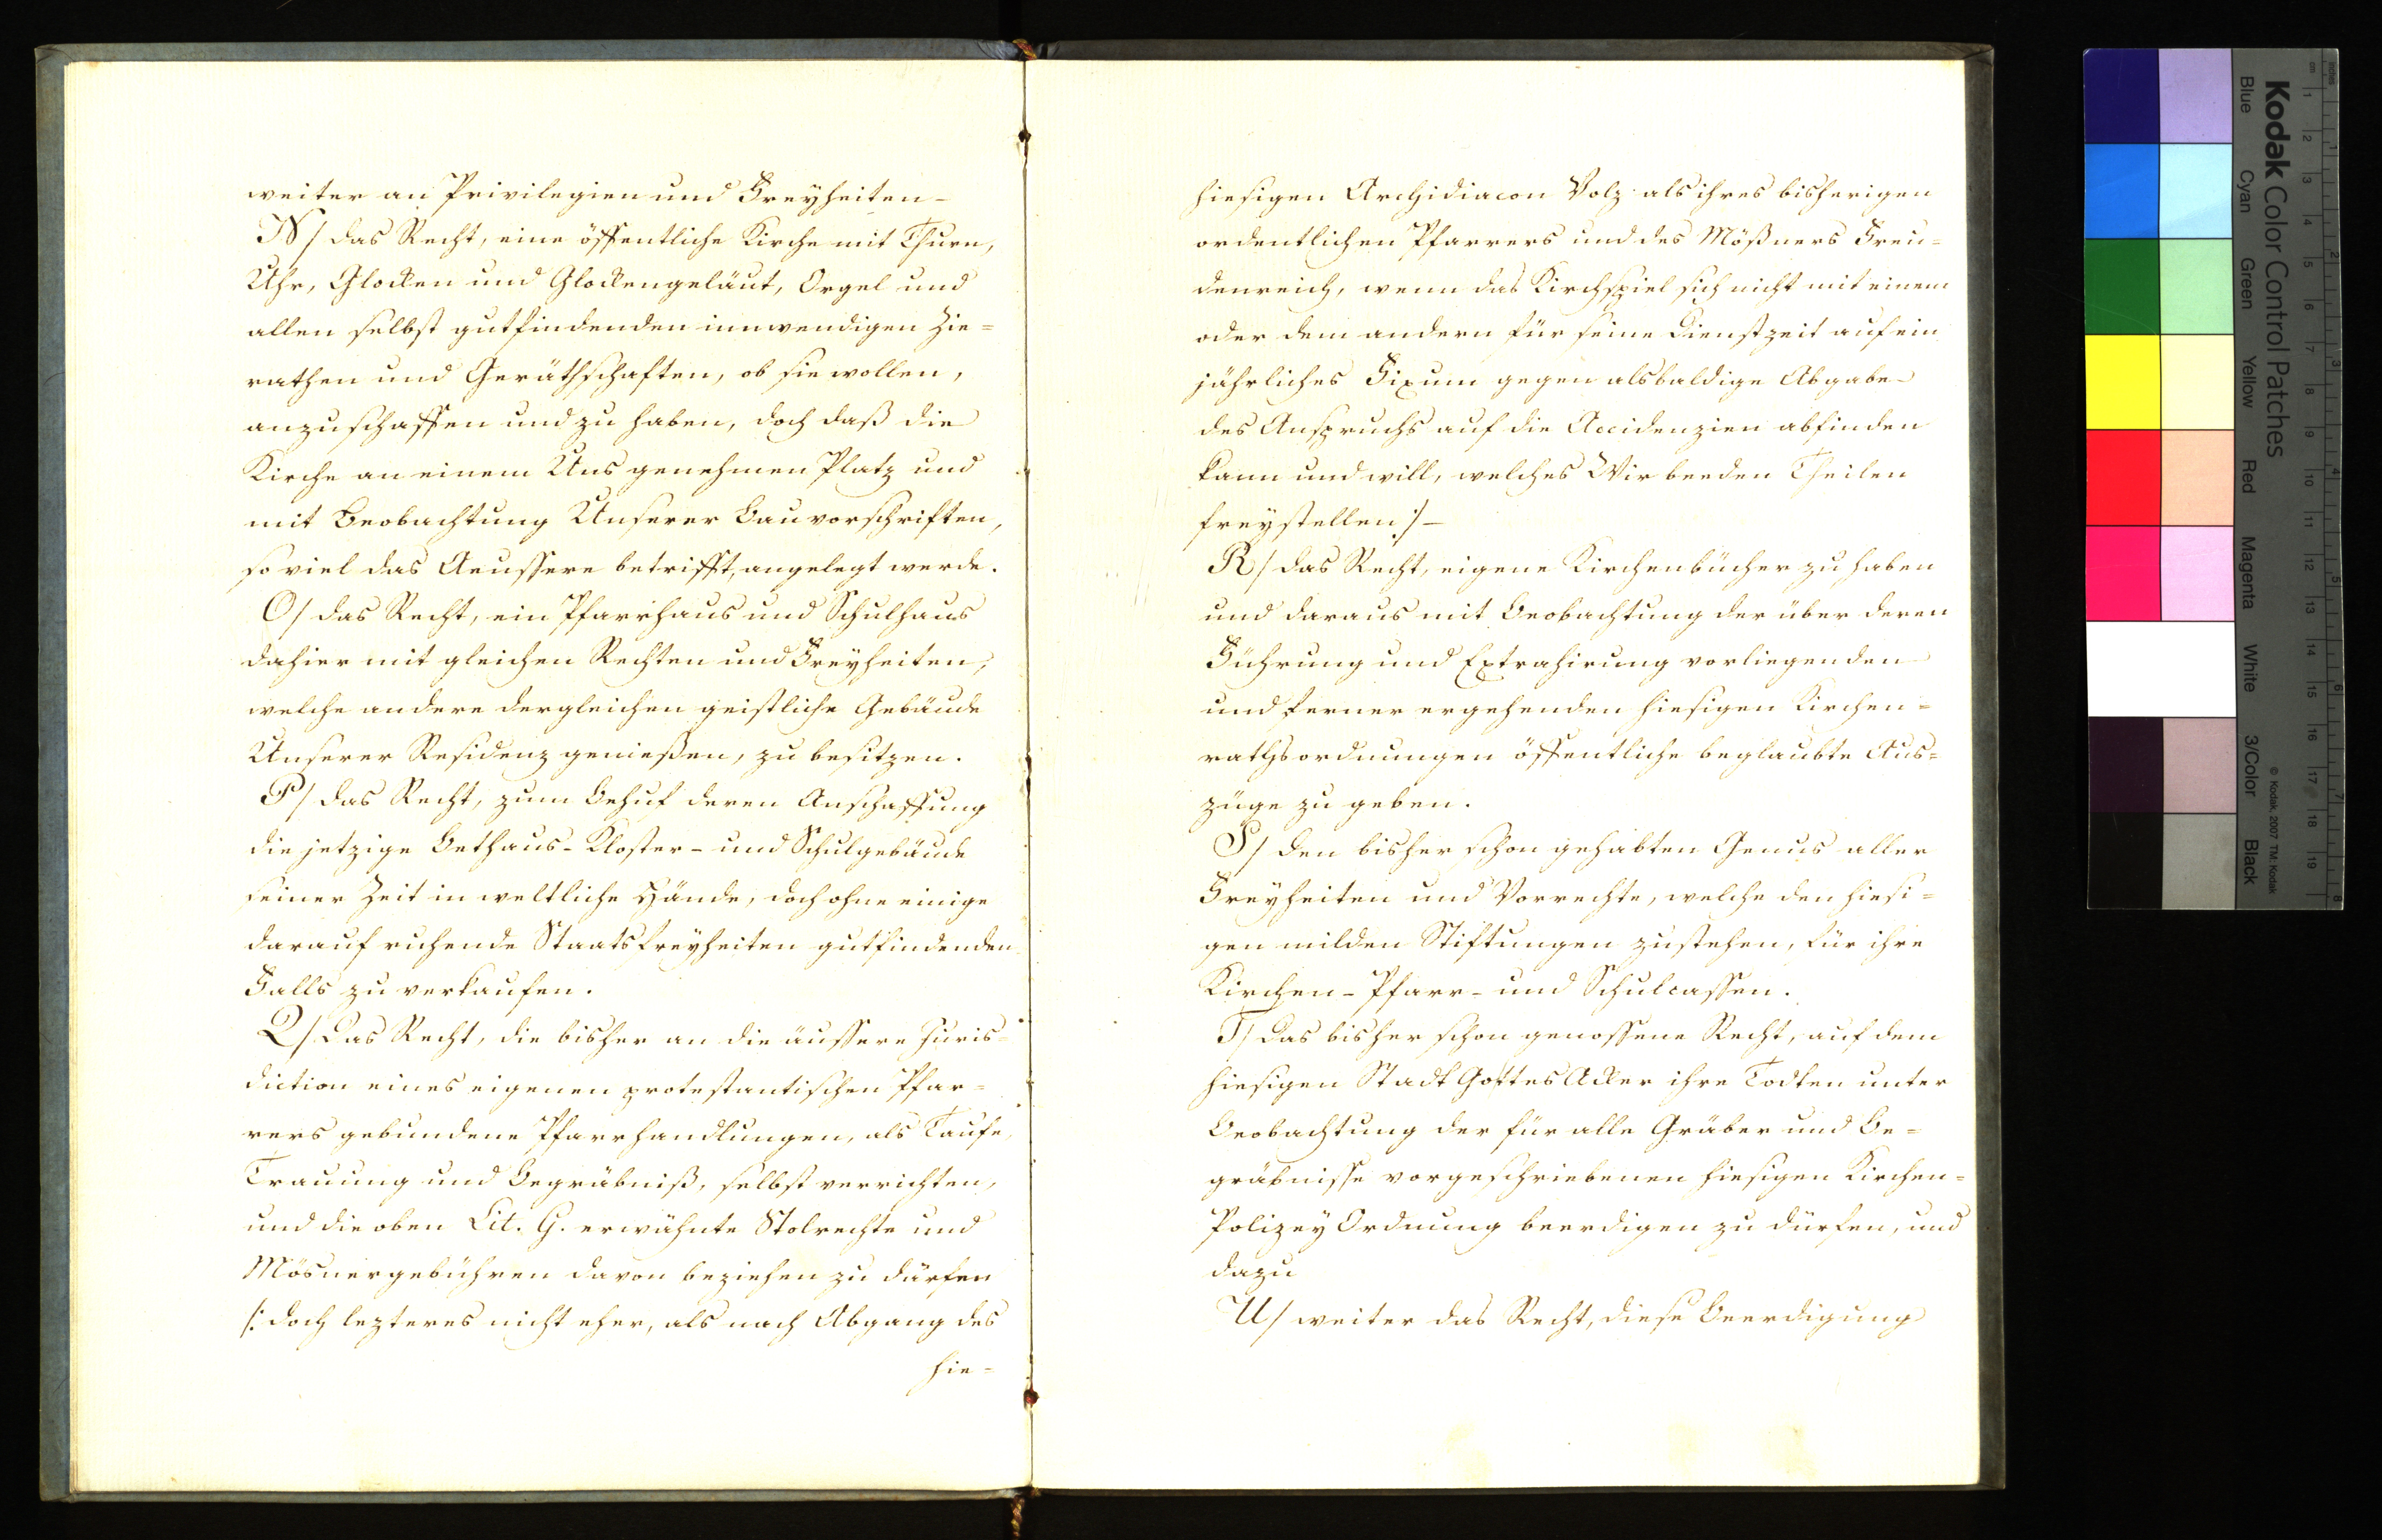 weiter an Privilegien und Freyheiten-
N/ das Recht, eine öffentliche Kirche mit Thurn,
Uhr, Glocken und Glockengeläut, Orgel und
allen selbst gutfindenden innwendigen Zie=
rathen und Geräthschaften, ob sie wollen,
anzuschaffen und zu haben, doch daß die
Kirche an einem Uns genehmen Platz und
mit Beobachtung Unserer Bauvorschriften,
so viel das Aeussere betrifft, angelegt werde.
O/ das Recht, ein Pfarrhaus und Schulhaus
dahier mit gleichen Rechten und Freyheiten,
welche andere dergleichen geistliche Gebäude
Unserer Residenz genießen, zu besitzen.
P/ das Recht, zum Behuf deren Anschaffung
die jetzige Bethaus- Kloster- und Schulgebäude
seiner Zeit in weltliche Hände, doch ohne einige
darauf ruhende Staatsfreyheiten gutfindenden
Falls zu verkaufen.
Q/ Das Recht, die bisher an die äussere Juris=
diction eines eigenen protestantischen Pfar=
rers gebundene Pfarrhandlungen, als Taufe,
Trauung und Begräbniß, selbst verrichten,
und die oben Lit. G. erwähnte Stolrechte und
Mösnergebühren davon beziehen zu dürfen
/: doch lezteres nicht eher, als nach Abgang des
hie-
hiesigen Archidiacon Volz als ihres bisherigen
ordentlichen Pfarrers und des Mößners Freu=
denreich, wenn das Kirchspiel sich nicht mit einem
oder dem andern für seine Dienstzeit auf ein
jährliches Fixum gegen alsbaldige Abgabe
des Anspruchs auf die Accidenzien abfinden
kann und will, welches Wir beeden Theilen
freystellen :/-
R/ das Recht, eigene Kirchenbücher zu haben
und daraus mit Beobachtung der über deren
Führung und Extrahirung vorliegenden
und ferner ergehenden hiesigen Kirchen=
rathsordnungen öffentliche beglaubte Aus=
züge zu geben.
S/ den bisher schon gehabten Genus aller
Freyheiten und Vorrechte, welche den hiesi=
gen milden Stiftungen zustehen, für ihre
Kirchen- Pfarr- und Schulcassen.
T/ Das bisher schon genossene Recht, auf dem
hiesigen Stadt Gottes Acker ihre Todten unter
Beobachtung der für alle Gräber und Be=
gräbnisse vorgeschriebenen hiesigen Kirchen=
Polizey Ordnung beerdigen zu dürfen, und
dazu
U/ weiter das Recht, diese Beerdigung
Kodak Color Control Patches
Blue Cyan Green Yellow Red Magenta White 3/Color Black
© Kodak, 2007 TM: Kodak
inches 1 2 3 4 5 6 7 8
cm 1 2 3 4 5 6 7 8 9 10 11 12 13 14 15 16 17 18 19